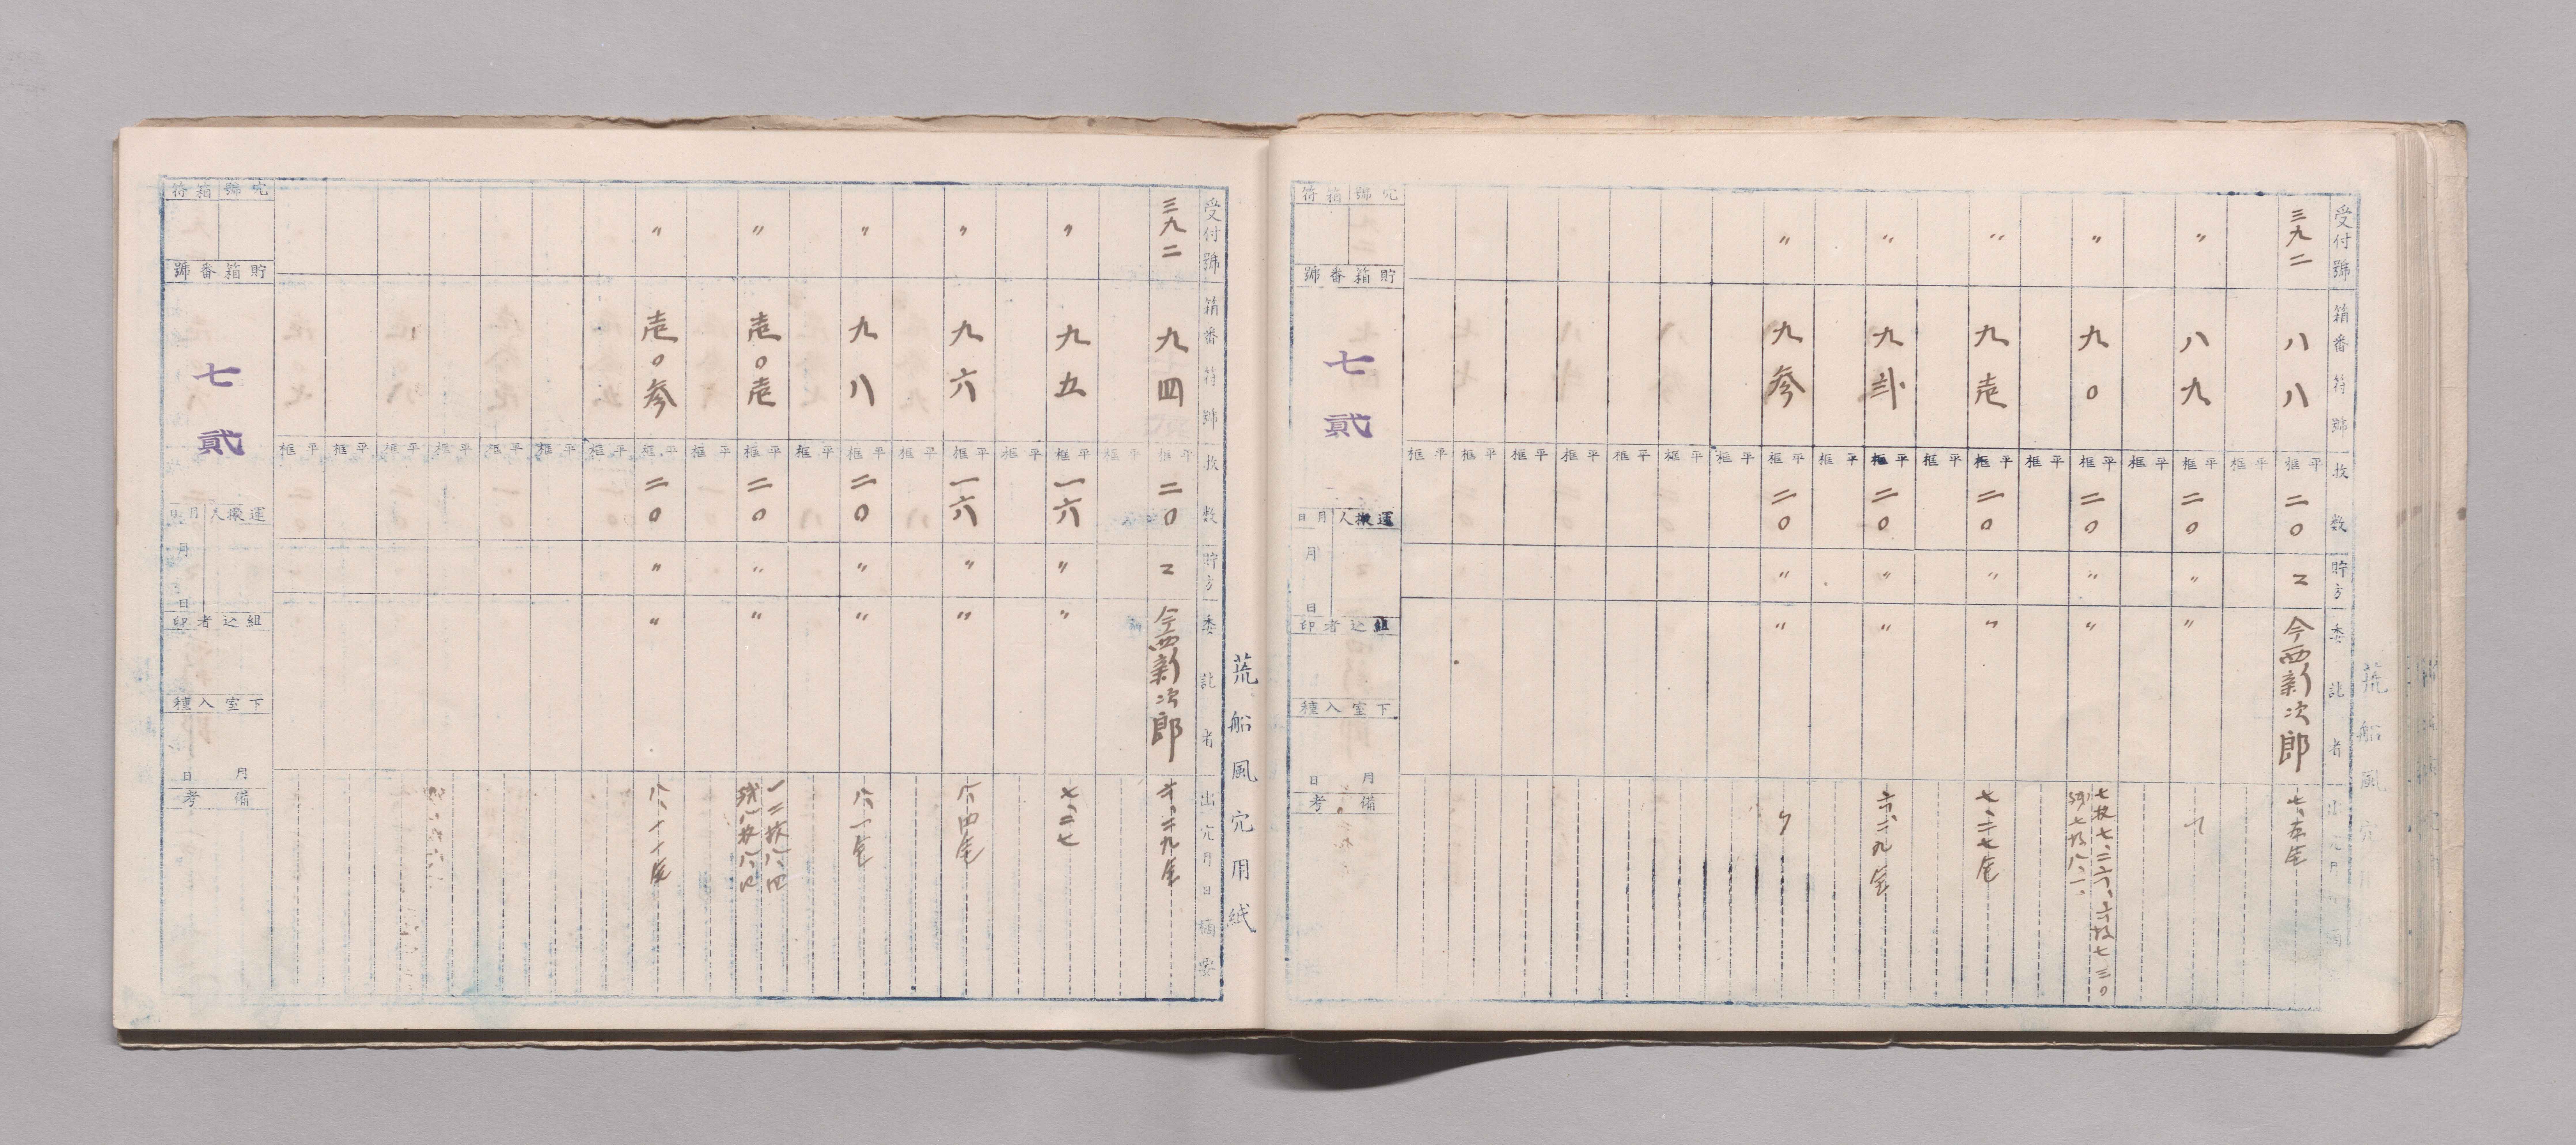 荒船風穴
受付號 箱番符號 枚数 貯方 委託者 出穴月日 摘要
三九二 八八 平框 二〇 2 今西新次郎
〃 八九 平框 二〇 〃 〃
〃 九〇 平框 二〇 〃 〃 七枚七、二六、六枚七三〇 残七枚八、一、
〃 九壱 平框 二〇 〃 〃 七、二七完
〃 九弐 平框 二〇 〃 〃 六、二九完
〃 九参 平框 二〇 〃 〃 〃
穴號 箱符
貯箱番號
七貳
運搬人 月日
月 日
組込者印
下室入種
月 日
備考
荒船風穴用紙
受付號 箱番符號 枚数 貯方 委託者 出穴月日 摘要
三九二 九四 平框 二〇 2 今西新次郎 六、二九完
〃 九五 平框 一六 〃 〃 七、二七
〃 九六 平框 一六 〃 〃 八、四完
〃 九八 平框 二〇 〃 〃 八、一完
〃 壱〇壱 平框 二〇 〃 〃 一二枚八、四 残八枚八、
〃 壱〇参 平框 二〇 〃 〃 八、十一完
穴號 箱符
貯箱番號
七貳
運搬人 月日
月 日
組込者印
下室入種
月 日
備考